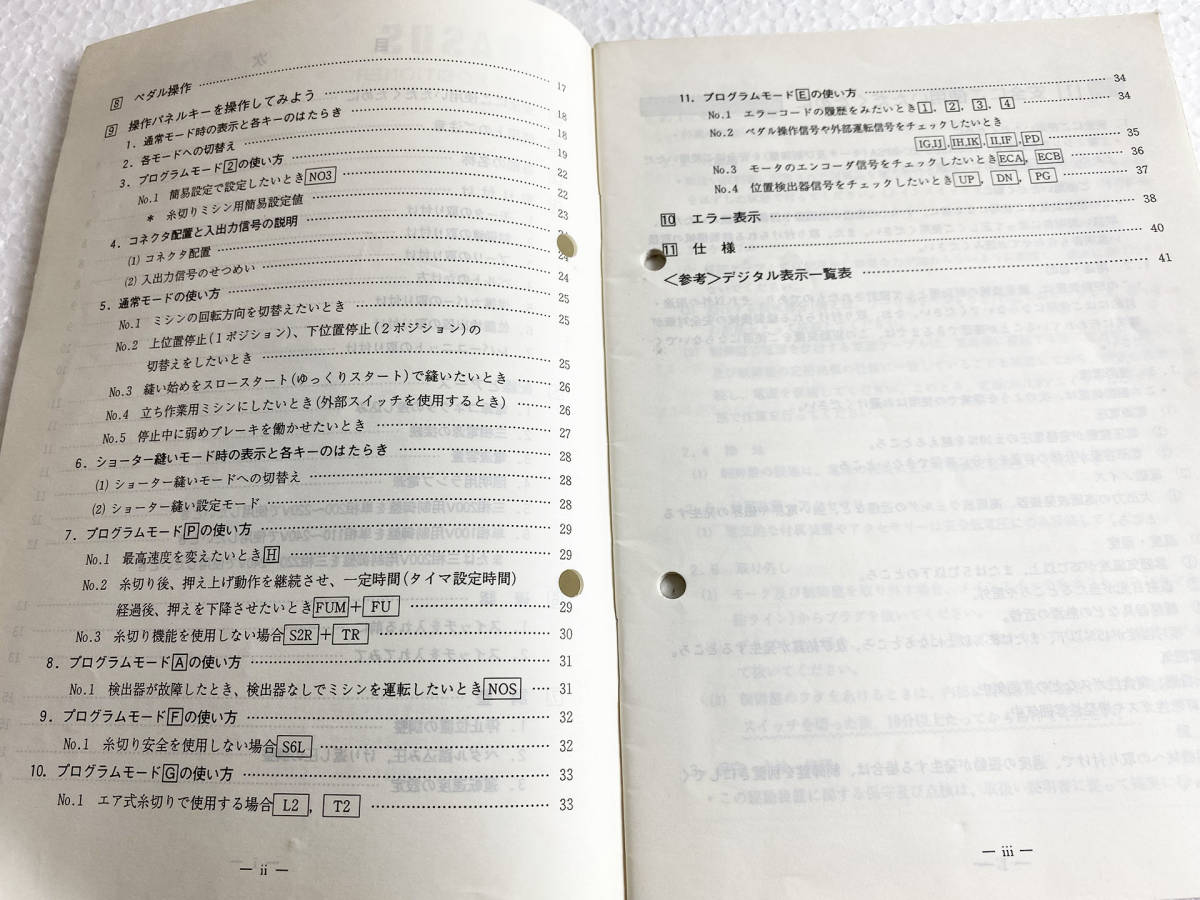 8 ペダル操作 …… 17
9 操作パネルキーを操作してみよう …… 18
1. 通常モード時の表示と各キーのはたらき …… 18
2. 各モードへの切替え …… 19
3. プログラムモード2の使い方 …… 22
No.1 簡易設定で設定したいときNO3 …… 22
* 糸切りミシン用簡易設定値 …… 23
4. コネクタ配置と入出力信号の説明 ……
(1) コネクタ配置 …… 24
(2) 入出力信号のせつめい …… 24
5. 通常モードの使い方 …… 25
No.1 ミシンの回転方向を切替えたいとき …… 25
No.2 上位置停止(1ポジション)、下位置停止(2ポジション)の
切替えをしたいとき …… 25
No.3 縫い始めをスロースタート(ゆっくりスタート)で縫いたいとき …… 26
No.4 立ち作業用ミシンにしたいとき(外部スイッチを使用するとき) …… 26
No.5 停止中に弱めブレーキを働かせたいとき …… 27
6. ショーター縫いモード時の表示と各キーのはたらき …… 28
(1) ショーター縫いモードへの切替え …… 28
(2) ショーター縫い設定モード …… 28
7. プログラムモードPの使い方 …… 29
No.1 最高速度を変えたいときH …… 29
No.2 糸切り後、押え上げ動作を継続させ、一定時間(タイマ設定時間)
経過後、押えを下降させたいときFUM+FU …… 29
No.3 糸切り機能を使用しない場合S2R+TR …… 30
8. プログラムモードAの使い方 …… 31
No.1 検出器が故障したとき、検出器なしでミシンを運転したいときNOS …… 31
9. プログラムモードFの使い方 …… 32
No.1 糸切り安全を使用しない場合S6L …… 32
10. プログラムモードGの使い方 …… 33
No.1 エア式糸切りで使用する場合L2, T2 …… 33
— ii —
11. プログラムモードEの使い方 …… 34
No.1 エラーコードの履歴をみたいとき1, 2, 3, 4 …… 34
No.2 ペダル操作信号や外部運転信号をチェックしたいとき
IG,IJ, IH,IK, II,IF, PD …… 35
No.3 モータのエンコーダ信号をチェックしたいときECA, ECB …… 36
No.4 位置検出器信号をチェックしたいときUP, DN, PG …… 37
10 エラー表示 …… 38
11 仕様 …… 40
<参考>デジタル表示一覧表 …… 41
— iii —